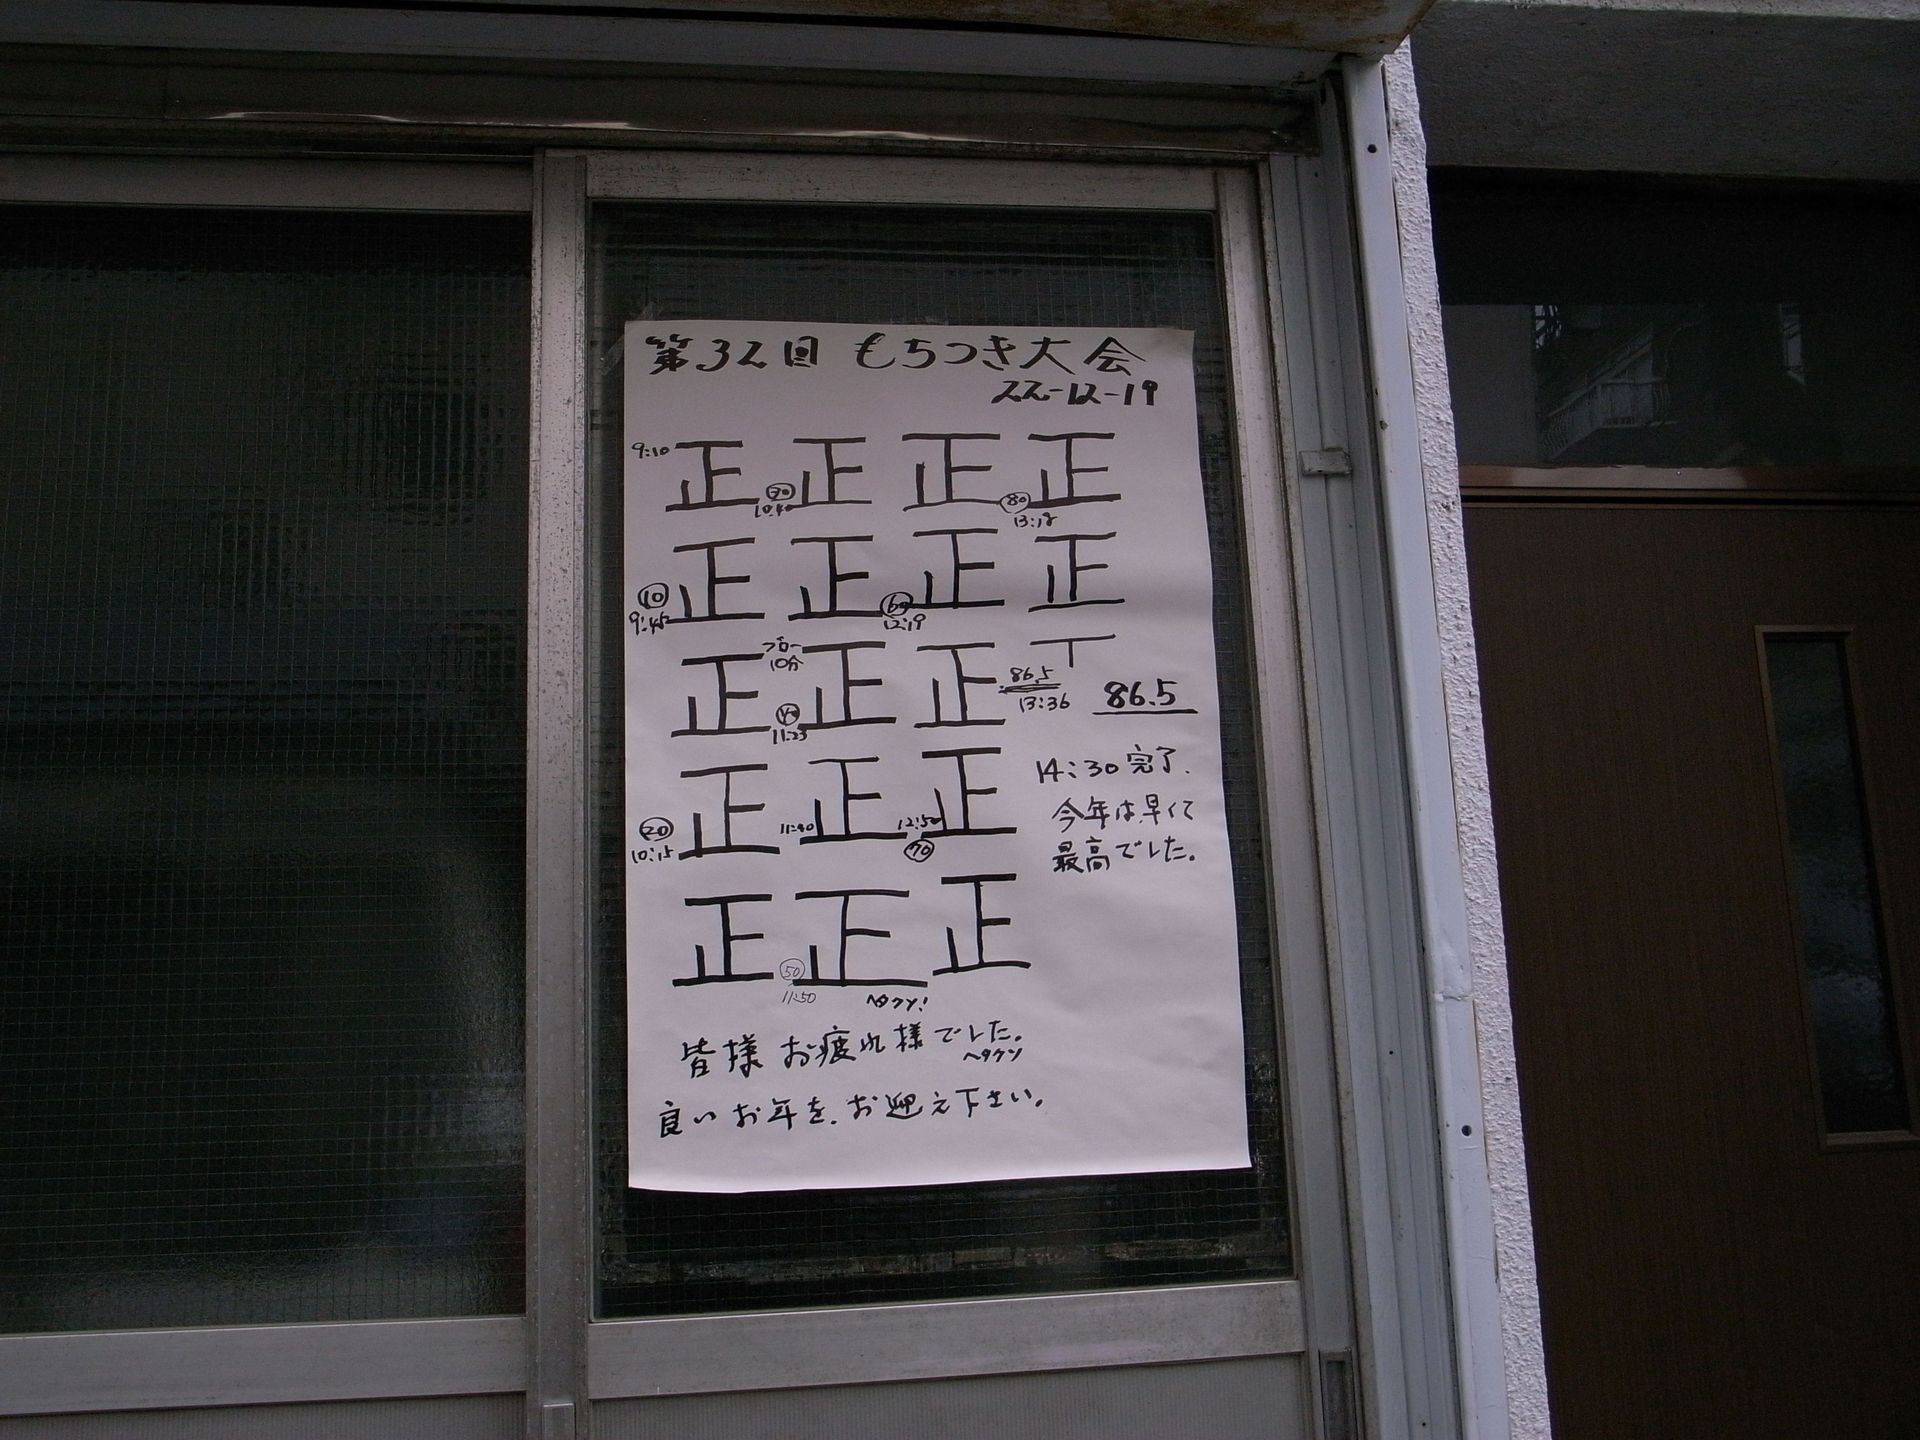 第32回 もちつき大会
22-12-19
9:10 正 正 正 正
㉚ 10:40
80 13:18
正 正 正 正
⑩ 9:45
60 12:19
正 正 正 T
ブロー 10分
㊵ 11:23
86.5 13:36
86.5
正 正 正
⑳ 10:15
11:40
12:50 70
14:30 完了.
今年は早くて
最高でした。
正 正 正
㊿ 11:50
ヘタクソ!
皆様 お疲れ様でした。
ヘタクソ
良いお年を、お迎え下さい。